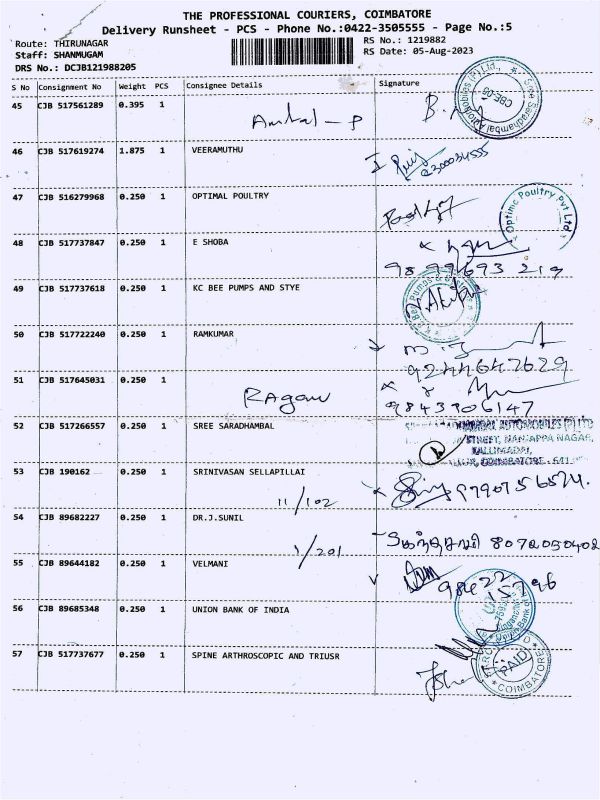 THE PROFESSIONAL COURIERS, COIMBATORE
Delivery Runsheet - PCS - Phone No.:0422-3505555 - Page No.:5
Route: THIRUNAGAR
Staff: SHANMUGAM
DRS No.: DCJB121988205
RS No.: 1219882
RS Date: 05-Aug-2023
S No Consignment No Weight PCS Consignee Details Signature
45 CJB 517561289 0.395 1 Ambal - P
CBE-06
46 CJB 517619274 1.875 1 VEERAMUTHU
47 CJB 516279968 0.250 1 OPTIMAL POULTRY
Optimc Poultry Pvt Ltd
48 CJB 517737847 0.250 1 E SHOBA
9899693 219
49 CJB 517737618 0.250 1 KC BEE PUMPS AND STYE
50 CJB 517722240 0.250 1 RAMKUMAR
9244647629
51 CJB 517645031 0.250 1 Ragavi
9843906147
52 CJB 517266557 0.250 1 SREE SARADHAMBAL
AUTOMOBILES (P) LTD
STREET, NANJAPPA NAGAR,
KALLIMADAI,
COIMBATORE - 641
53 CJB 190162 0.250 1 SRINIVASAN SELLAPILLAI
11/102
54 CJB 89682227 0.250 1 DR.J.SUNIL
1/201 8072050402
55 CJB 89644182 0.250 1 VELMANI
98422 15796
56 CJB 89685348 0.250 1 UNION BANK OF INDIA
57 CJB 517737677 0.250 1 SPINE ARTHROSCOPIC AND TRIUSR
PAID
COIMBATORE